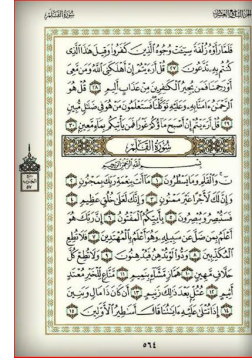 الجزء التاسع والعشرون
سُورَةُ القَلَم
فَلَمَّا رَأَوْهُ زُلْفَةً سِيٓـَٔتْ وُجُوهُ ٱلَّذِينَ كَفَرُوا۟ وَقِيلَ هَٰذَا ٱلَّذِى
كُنتُم بِهِۦ تَدَّعُونَ ٢٧ قُلْ أَرَءَيْتُمْ إِنْ أَهْلَكَنِىَ ٱللَّهُ وَمَن مَّعِىَ
أَوْ رَحِمَنَا فَمَن يُجِيرُ ٱلْكَٰفِرِينَ مِنْ عَذَابٍ أَلِيمٍ ٢٨ قُلْ هُوَ
ٱلرَّحْمَٰنُ ءَامَنَّا بِهِۦ وَعَلَيْهِ تَوَكَّلْنَا فَسَتَعْلَمُونَ مَنْ هُوَ فِى ضَلَٰلٍ مُّبِينٍ
٢٩ قُلْ أَرَءَيْتُمْ إِنْ أَصْبَحَ مَآؤُكُمْ غَوْرًا فَمَن يَأْتِيكُم بِمَآءٍ مَّعِينٍۭ ٣٠
سُورَةُ القَلَمِ
بِسْمِ ٱللَّهِ ٱلرَّحْمَٰنِ ٱلرَّحِيمِ
نٓ وَٱلْقَلَمِ وَمَا يَسْطُرُونَ ١ مَآ أَنتَ بِنِعْمَةِ رَبِّكَ بِمَجْنُونٍ ٢
وَإِنَّ لَكَ لَأَجْرًا غَيْرَ مَمْنُونٍ ٣ وَإِنَّكَ لَعَلَىٰ خُلُقٍ عَظِيمٍ ٤
فَسَتُبْصِرُ وَيُبْصِرُونَ ٥ بِأَييِّكُمُ ٱلْمَفْتُونُ ٦ إِنَّ رَبَّكَ هُوَ
أَعْلَمُ بِمَن ضَلَّ عَن سَبِيلِهِۦ وَهُوَ أَعْلَمُ بِٱلْمُهْتَدِينَ ٧ فَلَا تُطِعِ
ٱلْمُكَذِّبِينَ ٨ وَدُّوا۟ لَوْ تُدْهِنُ فَيُدْهِنُونَ ٩ وَلَا تُطِعْ كُلَّ
حَلَّافٍ مَّهِينٍ ١٠ هَمَّازٍ مَّشَّآءٍۭ بِنَمِيمٍ ١١ مَّنَّاعٍ لِّلْخَيْرِ مُعْتَدٍ
أَثِيمٍ ١٢ عُتُلٍّۭ بَعْدَ ذَٰلِكَ زَنِيمٍ ١٣ أَن كَانَ ذَا مَالٍ وَبَنِينَ
١٤ إِذَا تُتْلَىٰ عَلَيْهِ ءَايَٰتُنَا قَالَ أَسَٰطِيرُ ٱلْأَوَّلِينَ ١٥
٥٦٤